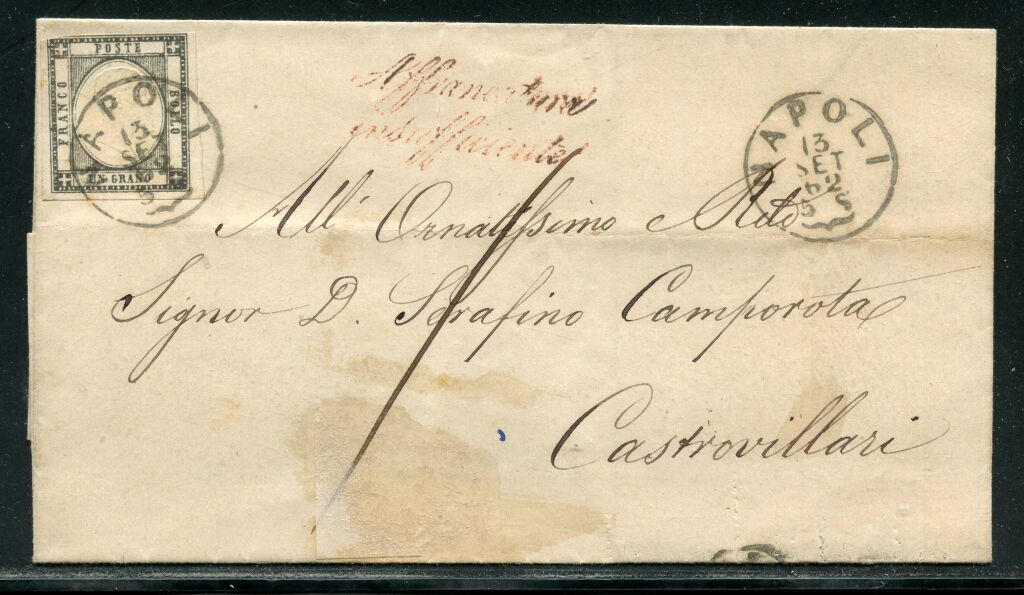 POSTE
FRANCO
BOLLO
UN GRANO
NAPOLI
13
SET
Affrancatura
insufficiente
NAPOLI
13
SET
62
5 S
All' Ornatissimo
Signor D. Serafino Camporota
Castrovillari